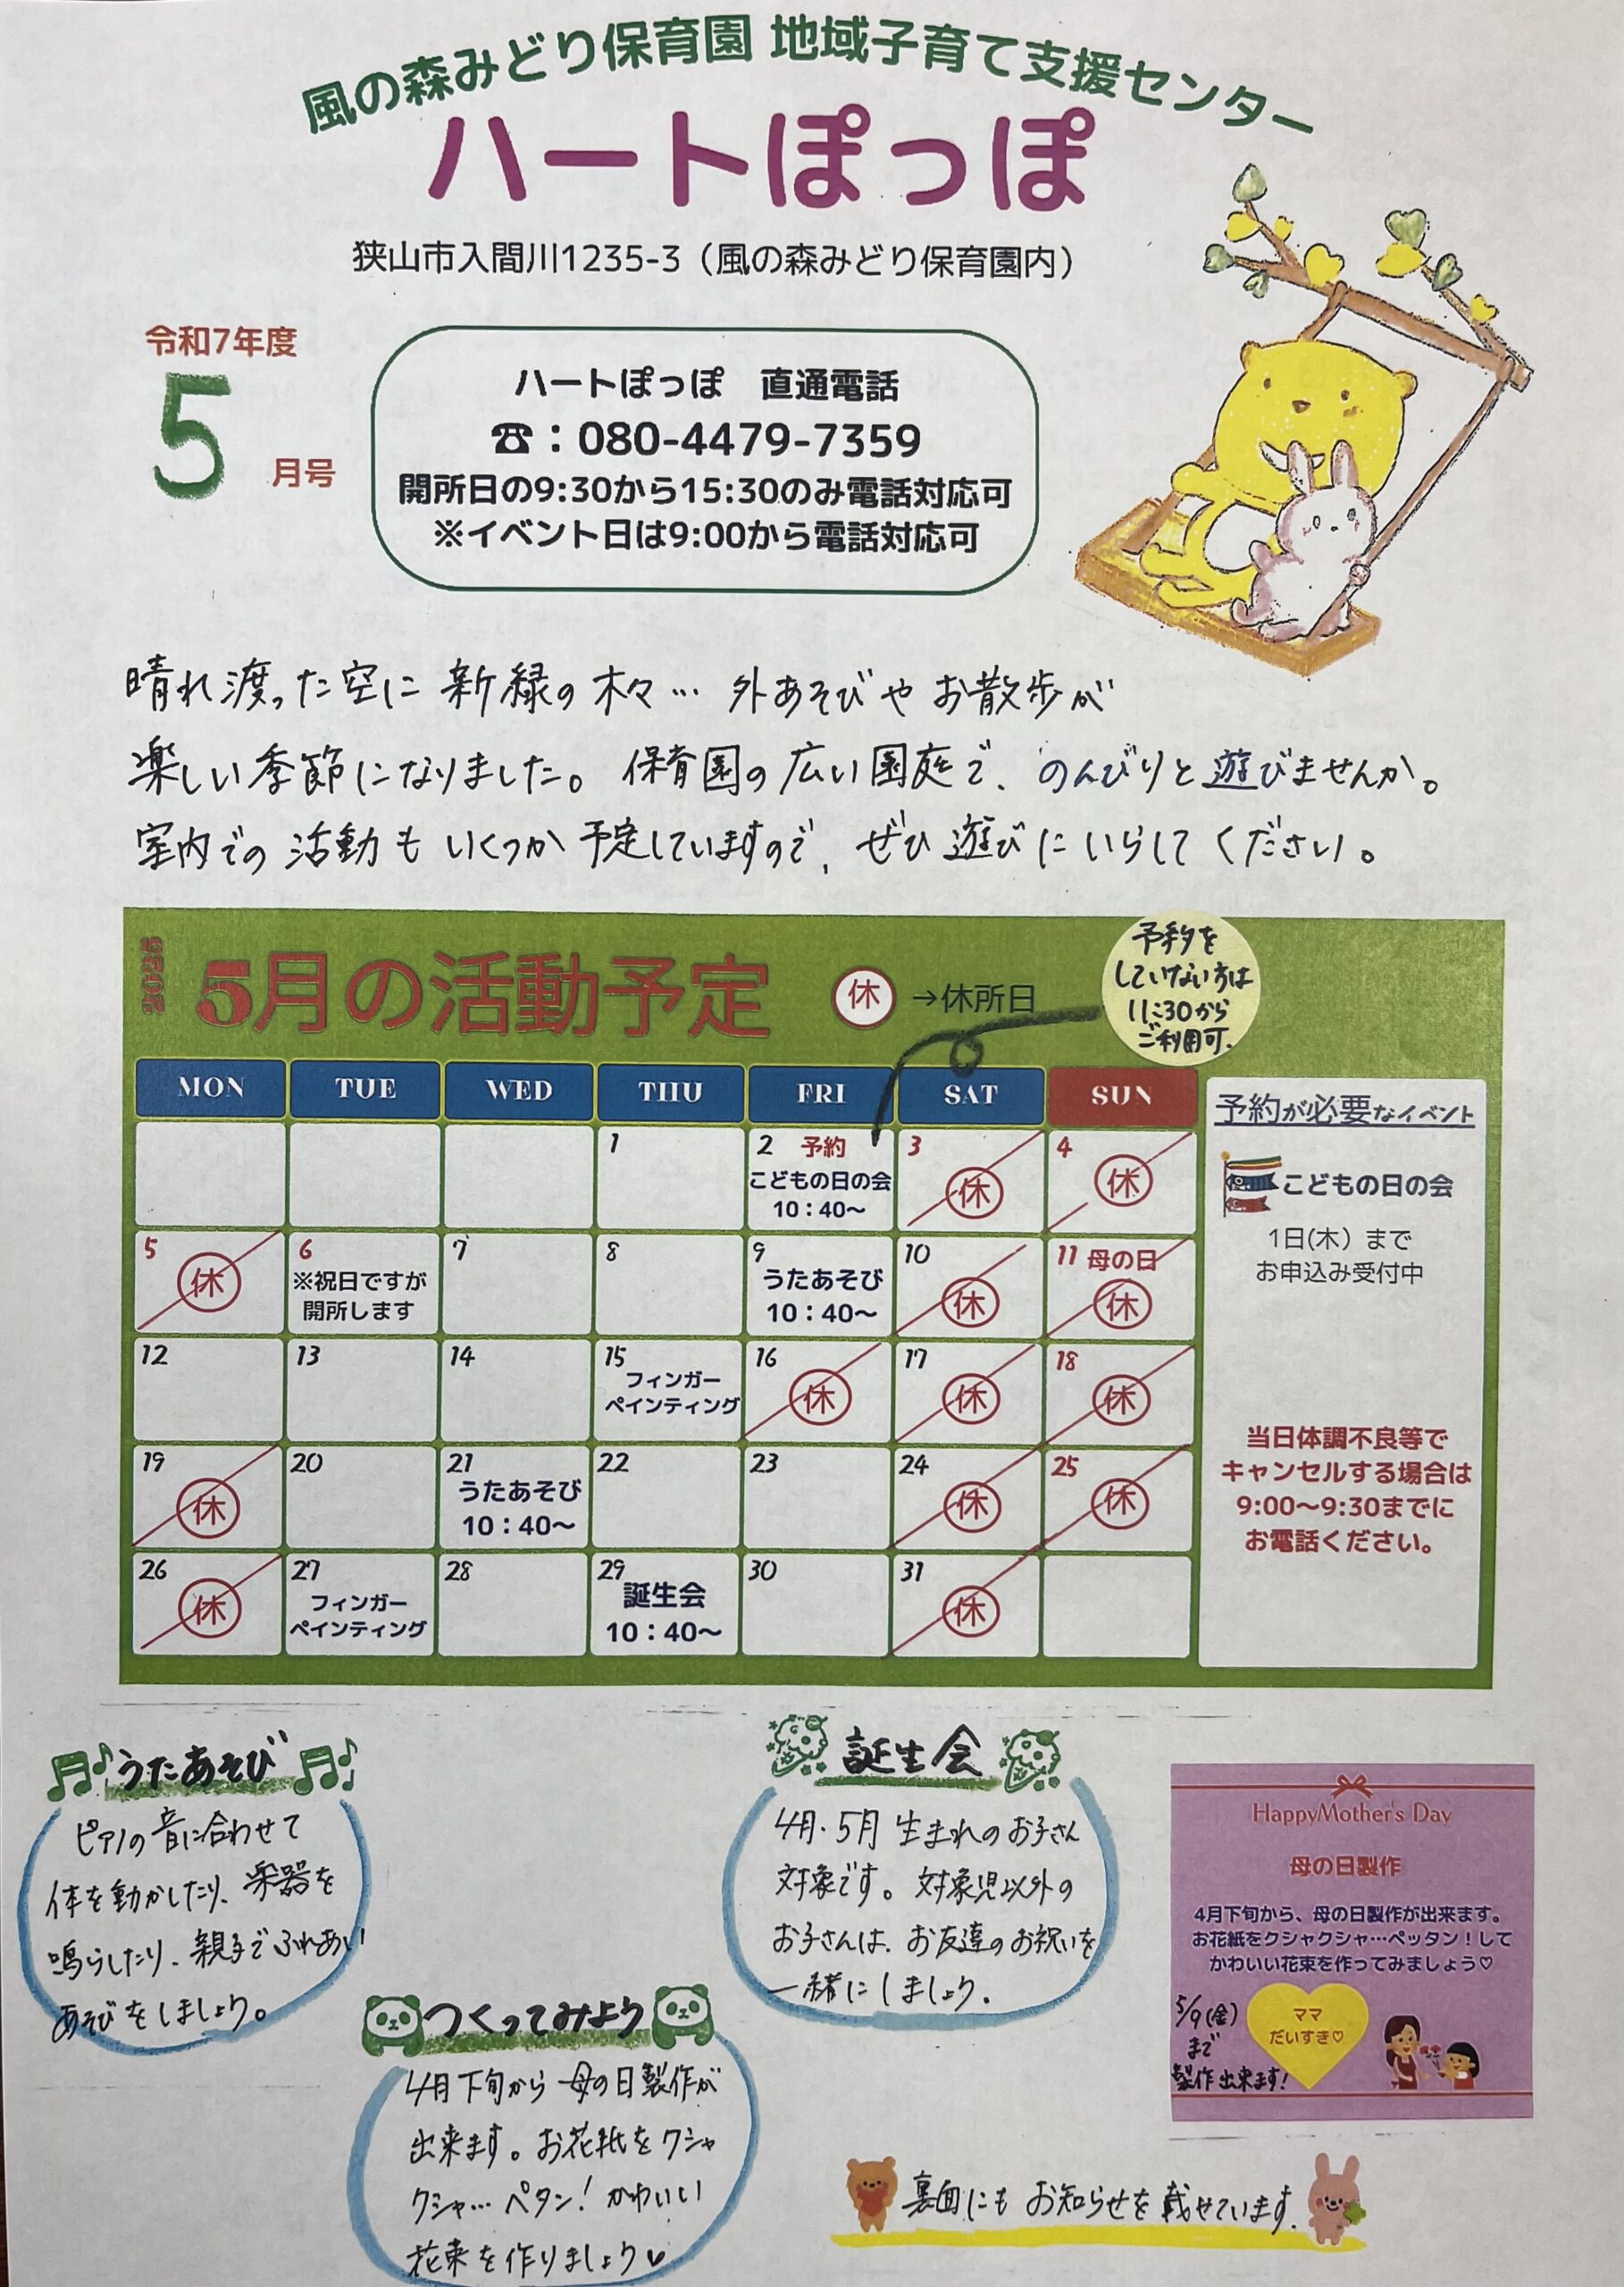 風の森みどり保育園 地域子育て支援センター
ハートぽっぽ
狭山市入間川1235-3（風の森みどり保育園内）
令和7年度
5
月号
ハートぽっぽ 直通電話
☎：080-4479-7359
開所日の9:30から15:30のみ電話対応可
※イベント日は9:00から電話対応可
晴れ渡った空に新緑の木々… 外あそびやお散歩が
楽しい季節になりました。保育園の広い園庭で、のんびりと遊びませんか。
室内での活動もいくつか予定していますので、ぜひ遊びにいらしてください。
2025
5月の活動予定
休 →休所日
予約を
していない方は
11:30から
ご利用可.
MON TUE WED THU FRI SAT SUN
1
2 予約
こどもの日の会
10：40～
3 休
4 休
5 休
6
※祝日ですが
開所します
7
8
9
うたあそび
10：40～
10 休
11 母の日
休
12
13
14
15
フィンガー
ペインティング
16 休
17 休
18 休
19 休
20
21
うたあそび
10：40～
22
23
24 休
25 休
26 休
27
フィンガー
ペインティング
28
29
誕生会
10：40～
30
31 休
予約が必要なイベント
こどもの日の会
1日(木）まで
お申込み受付中
当日体調不良等で
キャンセルする場合は
9:00～9:30までに
お電話ください。
うたあそび
ピアノの音に合わせて
体を動かしたり、楽器を
鳴らしたり、親子でふれあい
あそびをしましょう。
つくってみよう
4月下旬から母の日製作が
出来ます。お花紙をクシャ
クシャ…ペタン！かわいい
花束を作りましょう♡
誕生会
4月・5月生まれのお子さん
対象です。対象児以外の
お子さんは、お友達のお祝いを
一緒にしましょう.
HappyMother's Day
母の日製作
4月下旬から、母の日製作が出来ます。
お花紙をクシャクシャ…ペッタン！して
かわいい花束を作ってみましょう♡
5/9(金)
まで
製作出来ます!
ママ
だいすき♡
裏面にもお知らせを載せています.